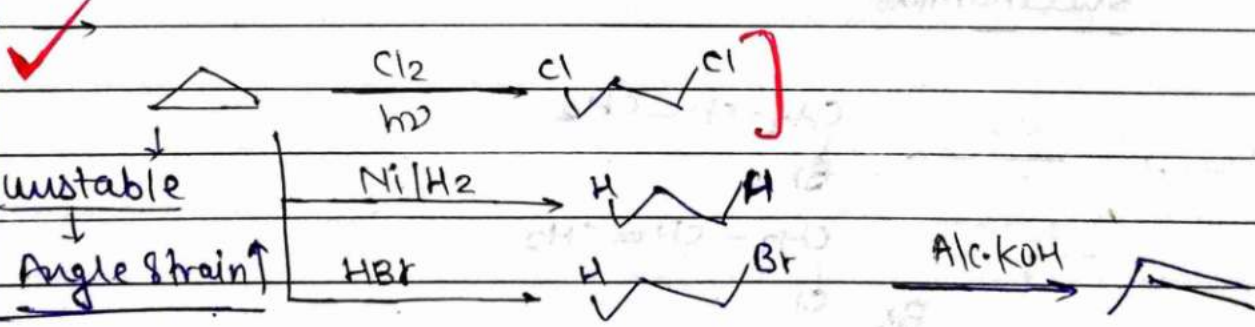 Cl2
Cl Cl
hν
unstable
Ni/H2
H H
Angle Strain↑
HBr
H Br
Alc.KOH